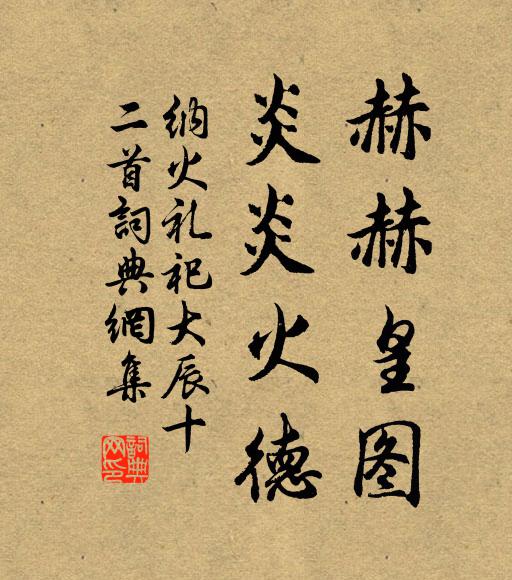 赫赫皇图
炎炎火德
纳火礼祀大辰十
二首詞典網集
詞典网印